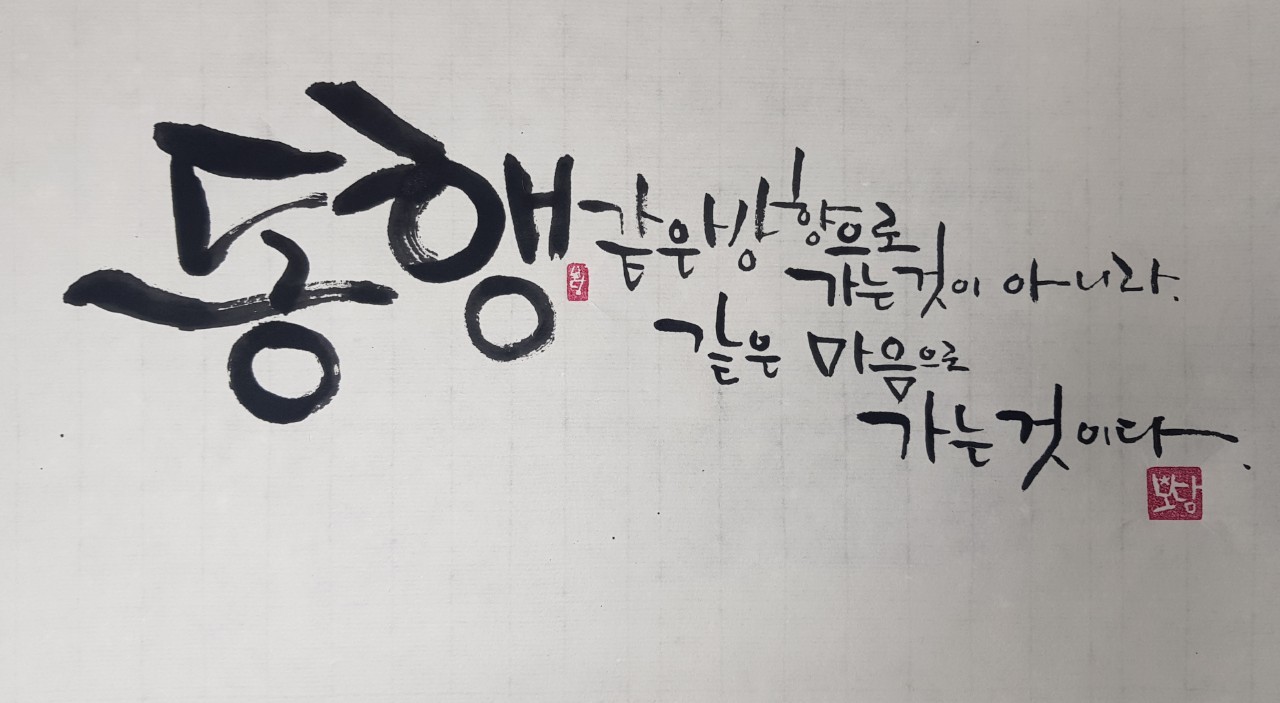 동행
같은 방향으로
가는 것이 아니라.
같은 마음으로
가는 것이다.